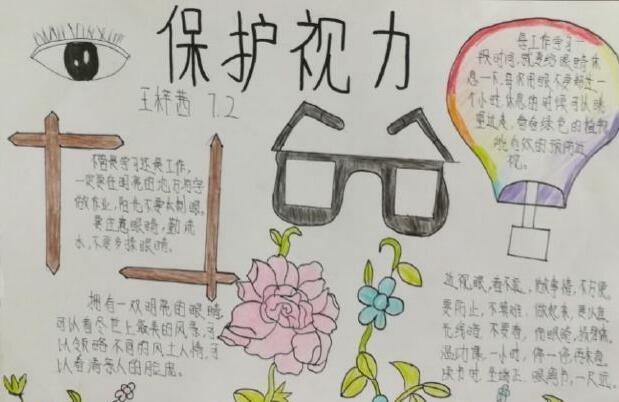 保护视力
王梓茜 7.2
每工作学习一
段时间,就要给眼睛休
息一下,每次用眼不要超过一
个小时休息的时候可以眺
望远处,看看绿色的植物
能有效的预防近
视。
不管是学习还是工作,
一定要在明亮的地方写字
做作业,阳光不要太刺眼。
要注意眼睛,勤洗
水,不要多揉眼睛。
拥有一双明亮的眼睛
可以看尽世上最美的风景,可
以领略不同的风土人情,可
以看清亲人的脸庞。
近视眼,看不远,做事情,不方便
要防止,不算难,做起来,要认真
光线暗,不要看,伤眼睛,
温功课,一小时,停一停再来看
读书时,坐端正,眼离书,一尺远。